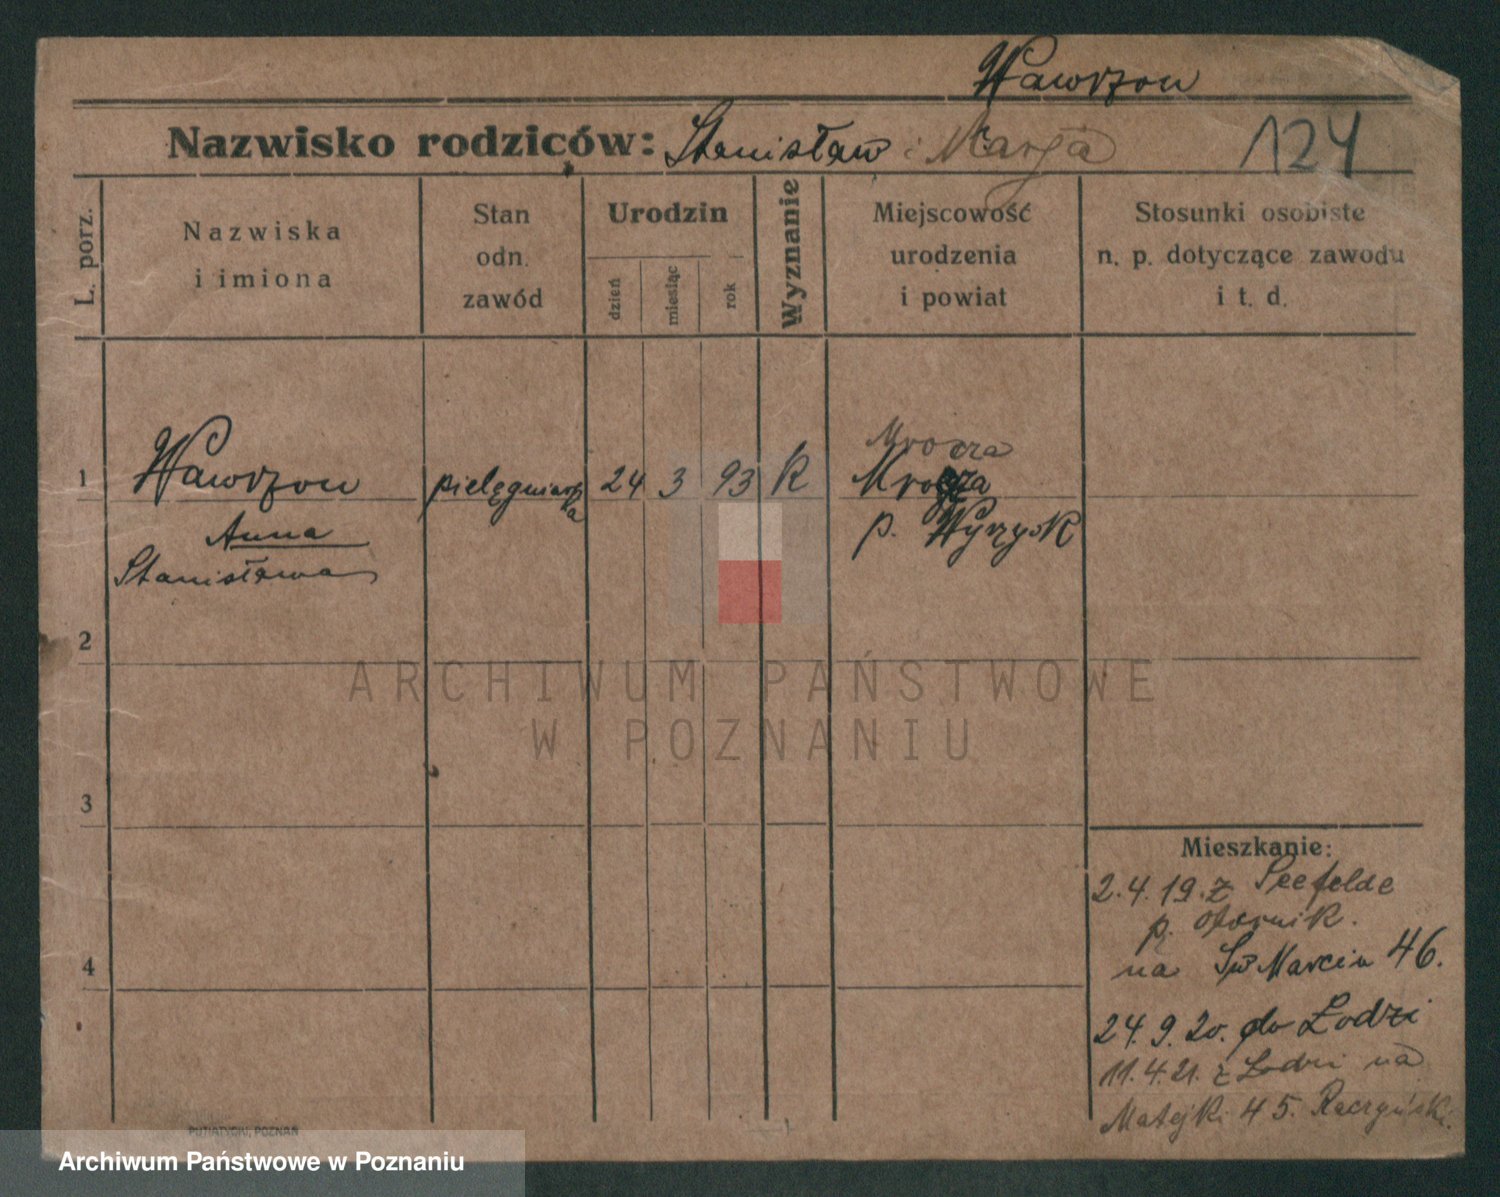 Wawrzon
Nazwisko rodziców: Stanisław i Marja
124
L. porz.
Nazwiska
i imiona
Stan
odn.
zawód
Urodzin
dzień
miesiąc
rok
Wyznanie
Miejscowość
urodzenia
i powiat
Stosunki osobiste
n. p. dotyczące zawodu
i t. d.
Mrocza
1 Wawrzon pielęgniarka 24 3 93 K Mrocza
Anna p. Wyrzysk
Stanisława
2
ARCHIWUM PAŃSTWOWE
W POZNANIU
3
Mieszkanie:
2.4.19. z Seefelde
p. Obornik.
4
na Św Marcin 46.
24.9.20. do Łodzi
11.4.21. z Łodzi na
Matejki 45. Raczyński.
PUTIATYCKI, POZNAŃ
Archiwum Państwowe w Poznaniu